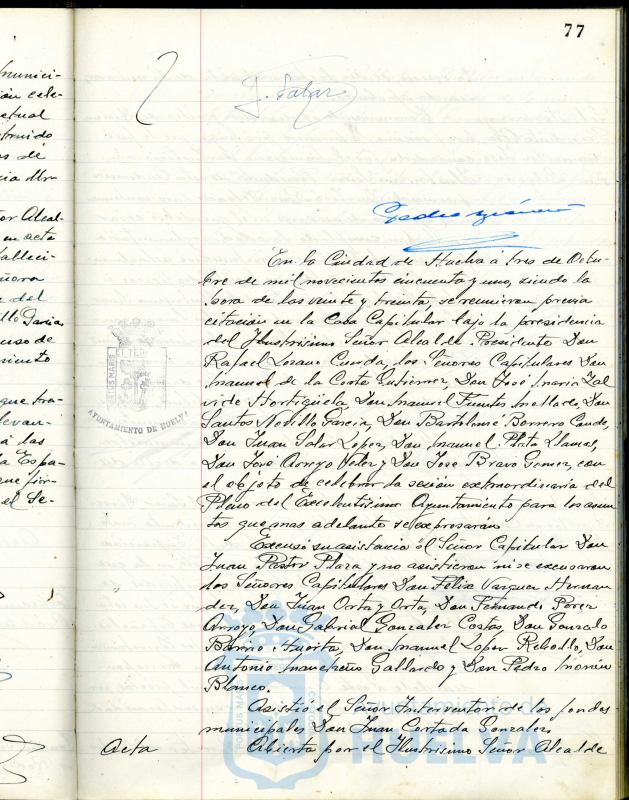 77
J. Salar
En la Ciudad de Huelva á tres de Octu-
bre de mil novecientos cincuenta y uno, siendo la
hora de las veinte y treinta, se reunieron previa
citación en la Casa Capitular bajo la presidencia
del Ilustrisimo Señor Alcalde Presidente Don
Rafael Lozano Cuerda, los Señores Capitulares Don
Manuel de la Corte Gutierrez, Don José Maria Zal
vide Hortigüela, Don Manuel Fuentes Mollado, Don
Santos Novillo Garcia, Don Bartolomé Borrero Conde,
Don Juan Salar Lopez, Don Manuel Plata Llamas,
Don José Arroyo Velez y Don Jose Bravo Gomez, con
el objeto de celebrar la sesión extraordinaria del
Pleno del Excelentisimo Ayuntamiento para los asun
tos que mas adelante se expresarán
Excusó su asistencia el Señor Capitular Don
Juan Pastor Plaza y no asistieron ni se excusaron
los Señores Capitulares Don Felix Vazquez Hernan
dez, Don Juan Orta y Orta, Don Fernando Perez
Arroyo, Don Gabriel Gonzalez Costa, Don Gonzalo
Barrio Huerta, Don Manuel Lopez Rebollo, Don
Antonio Gallardo y Don Pedro
Blanco.
Asistió el Señor Interventor de los fondos
municipales Don Juan Cortada Gonzalez
Acta Abierta por el Ilustrisimo Señor Alcalde
munici-
ión cele-
de
or Alcal-
en acta
alleci-
eñora
del
llo Garcia
de
miento
que tra-
levan-
á las
a Espa-
que fir-
el Se-
AYUNTAMIENTO DE HUELVA
Ayuntamiento de
HUELVA